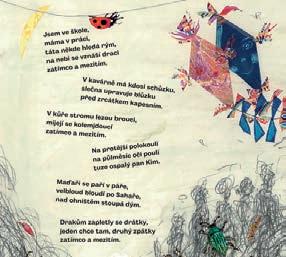 Jsem ve škole,
máma v práci,
táta někde hledá rým,
na nebi se vznáší draci
zatímco a mezitím.
V kavárně má kdosi schůzku,
slečna upravuje blůzku
před zrcátkem kapesním.
V kůře stromu lezou brouci,
míjejí se kolemjdoucí
zatímco a mezitím.
Na protější polokouli
na půlměsíc oči poulí
tuze ospalý pan Kim.
Maďaři se paří v páře,
velbloud bloudí po Sahaře,
nad ohništěm stoupá dým.
Drakům zapletly se drátky,
jeden chce tam, druhý zpátky
zatímco a mezitím.